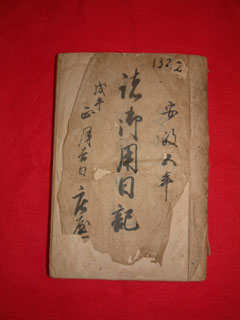 1322
安政五年
諸御用日記
戊午
正月吉日
庄屋